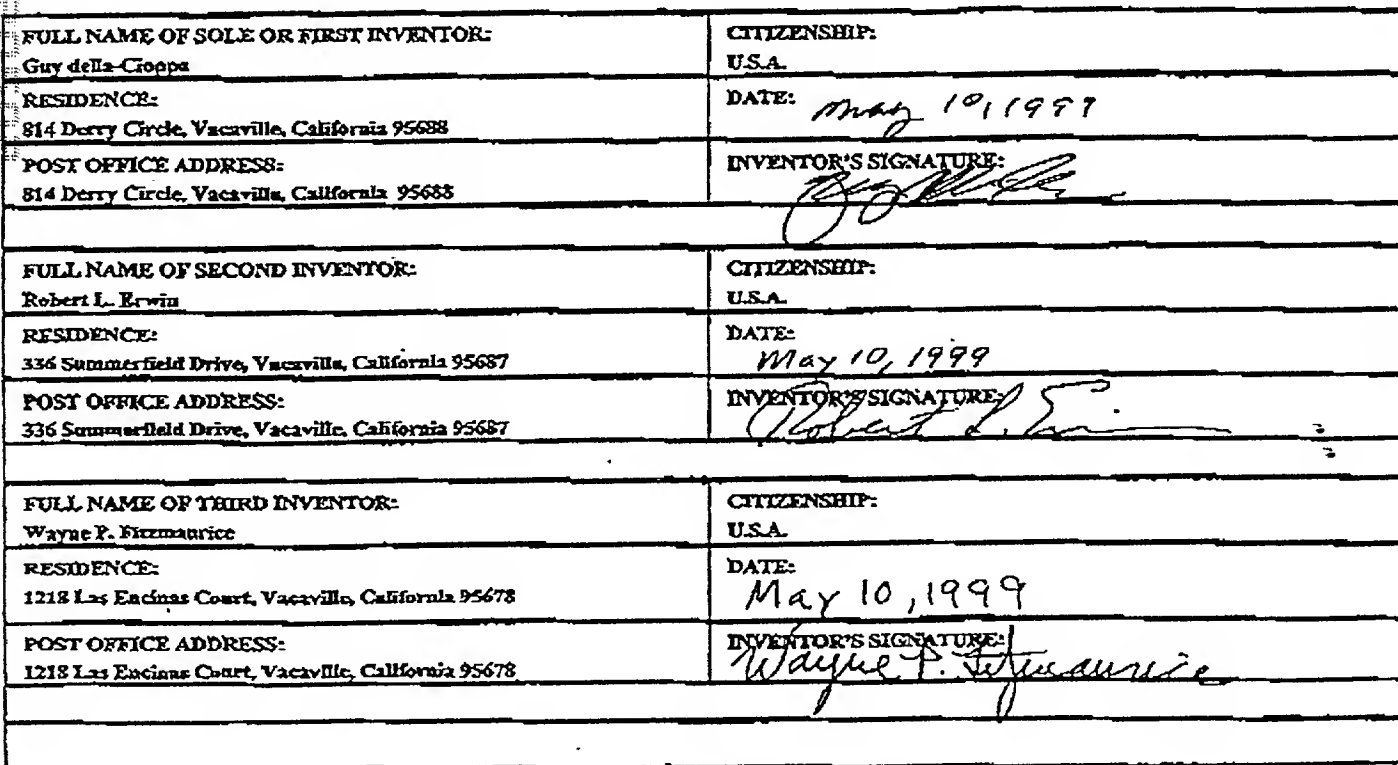 FULL NAME OF SOLE OR FIRST INVENTOR:
Guy della-Cioppa
CITIZENSHIP:
U.S.A.
RESIDENCE:
814 Derry Circle, Vacaville, California 95688
DATE: May 10, 1999
POST OFFICE ADDRESS:
814 Derry Circle, Vacaville, California 95688
INVENTOR'S SIGNATURE:
FULL NAME OF SECOND INVENTOR:
Robert L. Erwin
CITIZENSHIP:
U.S.A.
RESIDENCE:
336 Summerfield Drive, Vacaville, California 95687
DATE:
May 10, 1999
POST OFFICE ADDRESS:
336 Summerfield Drive, Vacaville, California 95687
INVENTOR'S SIGNATURE:
Robert L. Erwin
FULL NAME OF THIRD INVENTOR:
Wayne P. Fitzmaurice
CITIZENSHIP:
U.S.A.
RESIDENCE:
1218 Las Encinas Court, Vacaville, California 95678
DATE:
May 10, 1999
POST OFFICE ADDRESS:
1218 Las Encinas Court, Vacaville, California 95678
INVENTOR'S SIGNATURE:
Wayne P. Fitzmaurice